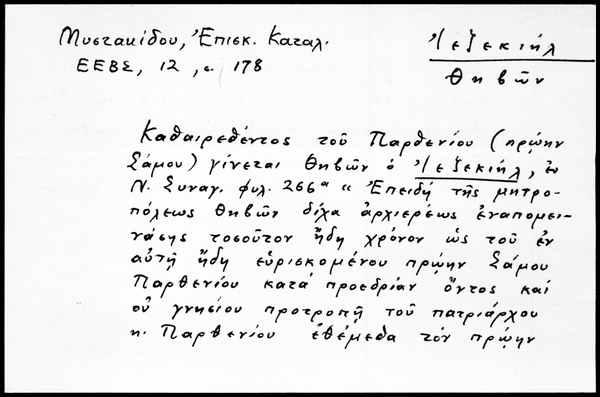 Μυστακίδου, Ἐπισκ. Καταλ.
ΕΕΒΣ, 12, σ. 178
Ἰεζεκιήλ
Θηβῶν
Καθαιρεθέντος τοῦ Παρθενίου (πρώην
Σάμου) γίνεται Θηβῶν ὁ Ἰεζεκιήλ, ἐν
Ν. Συναγ. φυλ. 266α " Ἐπειδή τῆς μητρο-
πόλεως Θηβῶν δίχα ἀρχιερέως ἐναπομει-
νάσης τοσοῦτον ἤδη χρόνον ὡς τοῦ ἐν
αὐτῇ ἤδη εὑρισκομένου πρώην Σάμου
Παρθενίου κατά προεδρίαν ὄντος καί
οὐ γνησίου προτροπῇ τοῦ πατριάρχου
κ. Παρθενίου ἐθέμεθα τόν πρώην